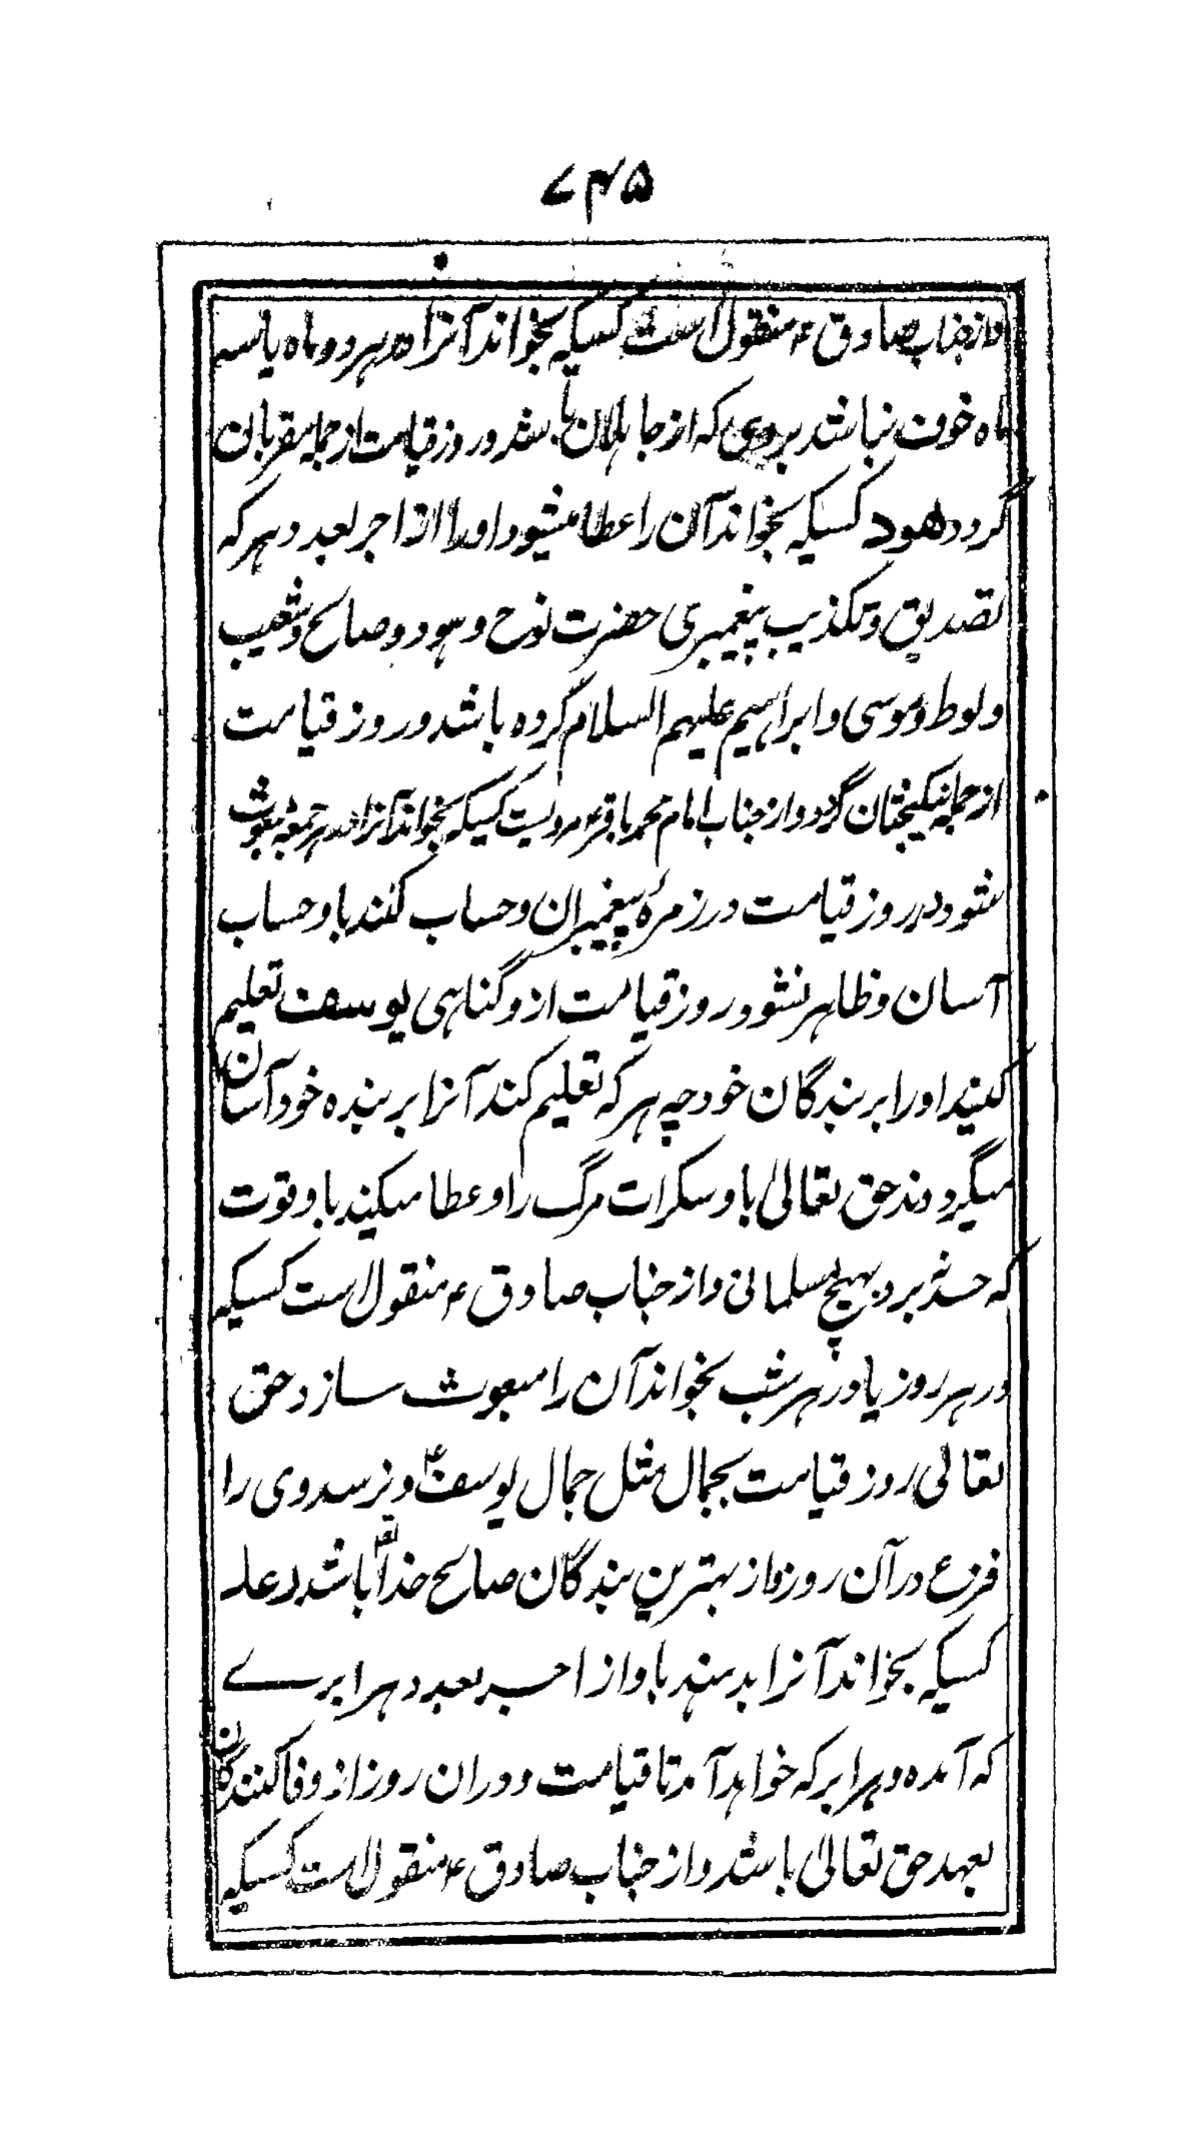 ۷۴۵
و از جناب صادق ع منقول است کسیکه بخواند آنرا در هر دو ماه یا سه
ماه خوف نباشد بروی که از جاهلان باشد و روز قیامت از جمله مقربان
گردد هود کسیکه بخواند آن را عطا میشود او را از اجر بعدد هر که
تصدیق و تکذیب پیغمبری حضرت نوح و هود و صالح و شعیب
و لوط و موسی و ابراهیم علیهم السلام کرده باشد و روز قیامت
از جمله نیکبختان گردد و از جناب امام محمد باقر ع مرویست کسیکه بخواند آنرا در هر جمعه مبعوث
شود در روز قیامت در زمرهٔ پیغمبران و حساب کنند با و حساب
آسان و ظاهر نشود روز قیامت از و گناهی یوسف تعلیم
کنید او را بر بندگان خود چه هر که تعلیم کند آنرا بر بنده خود آسان
میگرداند حق تعالیٰ با و سکرات مرگ را و عطا میکند با و قوت
که حسد نبرد بهیچ مسلمانی و از جناب صادق ع منقول است کسیکه
در هر روز یا در هر شب بخواند آن را مبعوث سازد حق
تعالی روز قیامت بجمال مثل جمال یوسف ع و نرسد وی را
فزع در آن روز و از بهترین بندگان صالح خدا باشد رعد
کسیکه بخواند آنرا بدهند با و از اجر بعدد هر ابرے
که آمده و هر ابر که خواهد آمد تا قیامت و در آن روز از وفا کنندگان
بعهد حق تعالیٰ باشد و از جناب صادق ع منقول است کسیکه